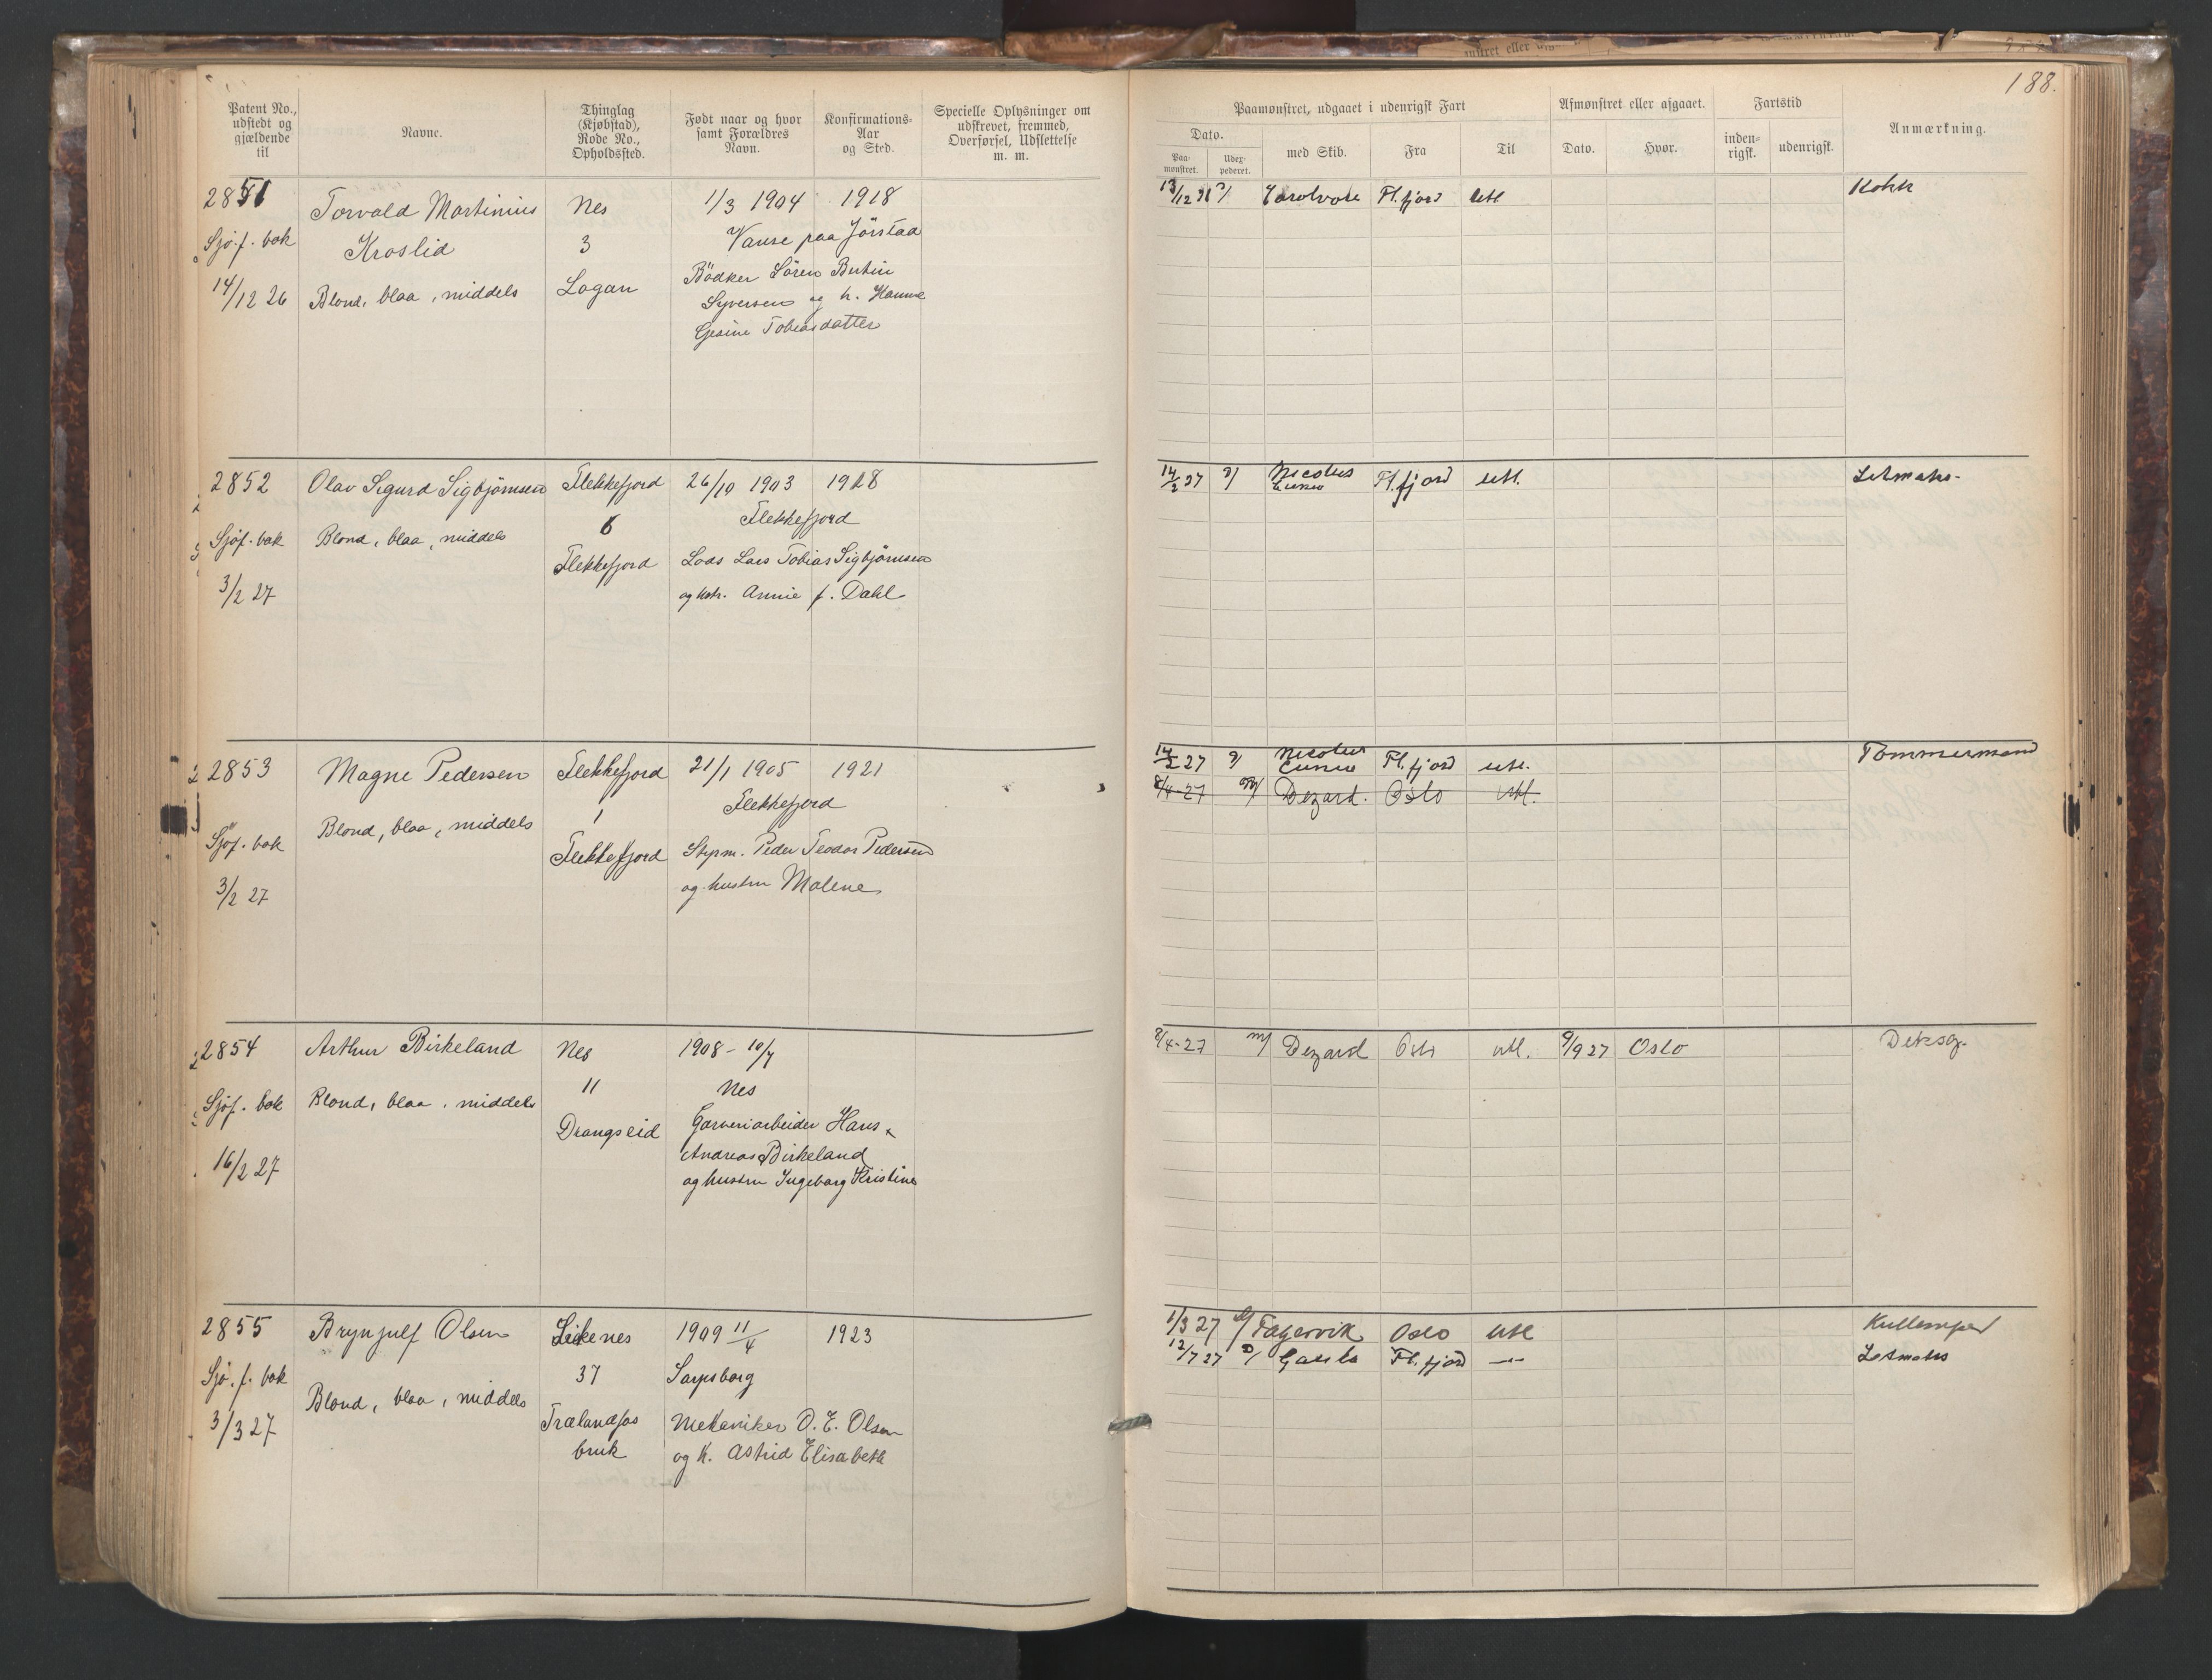 188.
Patent No., udstedt og gjældende til
Navne.
Thinglag (Kjøbstad), Rode No., Opholdssted.
Født naar og hvor samt Forældres Navn.
Konfirmations-Aar og Sted.
Specielle Oplysninger om udskrevet, fremmed, Overførsel, Udslettelse m. m.
Paamønstret, udgaaet i udenrigsk Fart
Dato.
Paa-mønstret.
Udex-pederet.
med Skib.
Fra
Til
Afmønstret eller afgaaet.
Dato.
Hvor.
Fartstid
inden-rigsk.
udenrigsk.
Anmærkning.
2851
Sjö.f. bok
14/12 26
Torvald Martinius
Kroslid
Blond, blaa, middels
Nes
3
Logan
1/3 1904 1918
Vanse paa Jörstad
Bödker Sören Bertin
Syversen og h. Hanna
Gesine Tobiasdatter
13/12 Fl.fjord utl Kokk
2852
Sjöf. bok
3/2 27
Olav Sigurd Sigbjörnsen
Blond, blaa, middels
Flekkefjord
6
Flekkefjord
26/10 1903 1918
Flekkefjord
Lods Lars Tobias Sigbjörnsen
og hstr. Annie f. Dahl
14/2 27 Fl.fjord utl. Letmatr.
2853
Sjöf. bok
3/2 27
Magne Pedersen
Blond, blaa, middels
Flekkefjord
1
Flekkefjord
21/1 1905 1921
Flekkefjord
Styrm. Peder Teodor Pedersen
og hustru Malene
14/2 27 Fl.fjord utl. Tømmermand
8/4-27 m/ Dezard. Oslo utl.
2854
Sjöf. bok
16/2 27
Arthur Birkeland
Blond, blaa, middels
Nes
11
Drangseid
1908 - 10/7
Nes
Garveriarbeider Hans
Andreas Birkeland
og hustru Ingeborg Kristine
8/4-27 m/ Dezard Oslo utl. 9/9 27 Oslo Deksg.
2855
Sjö.f. bok
3/3 27
Brynjulf Olsen
Blond, blaa, middels
Liknes
37
Trælandsfos
bruk
1909 11/4 1923
Sarpsborg
Mekaniker O. E. Olsen
og h. Astrid Elisabeth
1/3 27 Fagervik Oslo utl Kullemper
12/7 27 D/ Gausta Fl.fjord -"- Letmatr